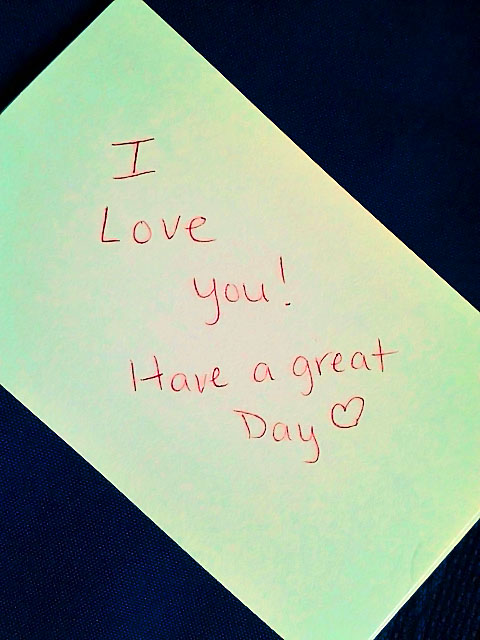 I
Love
you!
Have a great
Day ♡